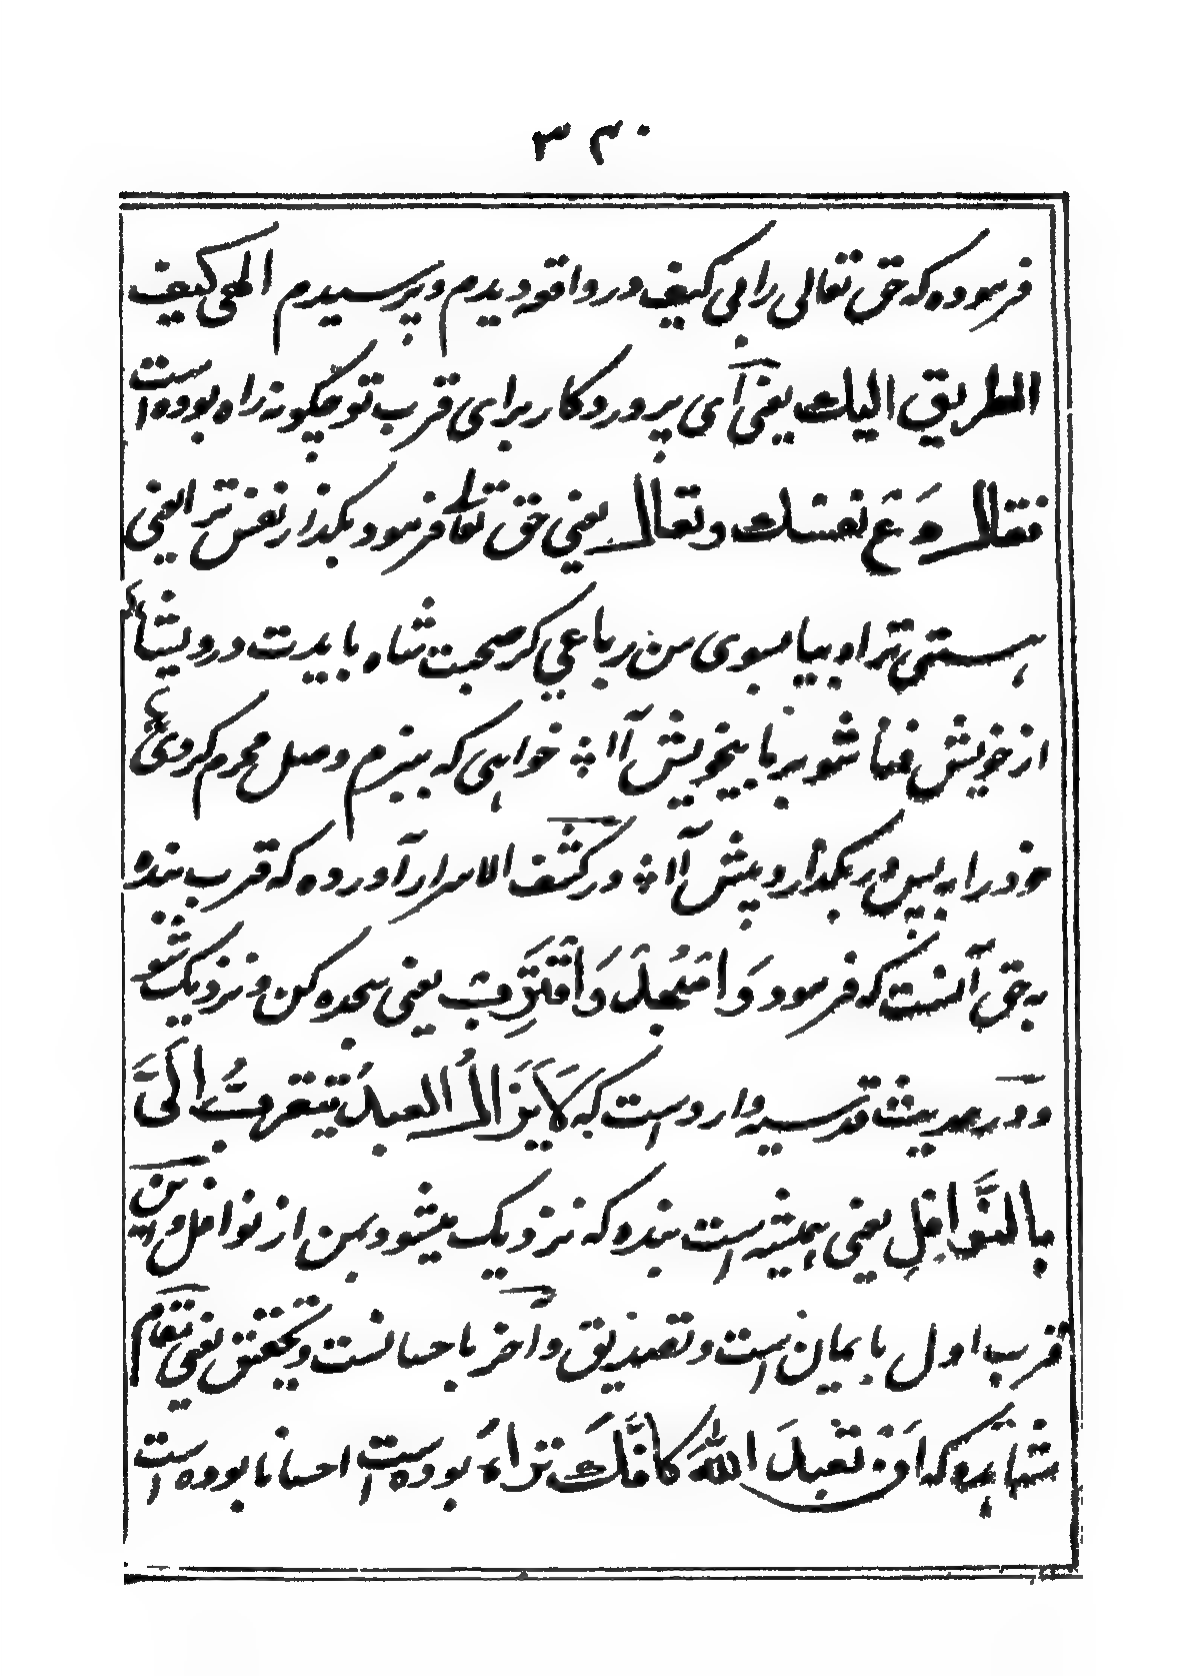 ۳۴۰
فرموده که حق تعالی را بی کیف در واقعه دیدم و پرسیدم الهی کیف
الطریق الیک یعنی آی پروردکار برای قرب تو چکونه راه بوده است
فقال دَع نفسک وتعال یعنی حق تعالی فرمود بکذار نفس ترا یعنی
هستی ترا و بیا بسوی من رباعی کر صحبت شاه بایدت درویشا
از خویش فنا شو بر ما بیخویش آ ا ؞ خواهی که ببزم وصل محرم کردی
خود را به پس در بکذار و پیش آ ا ؞ در کشف الاسرار آورده که قرب بنده
به حق آنست که فرمود وَاسْجُدْ وَاقْتَرِبْ یعنی سجده کن و نزدیک شو
و در حدیث قدسیه وارد است که لَا یَزَالُ العبدُ یَتَقربُ اِلَیَّ
بالنَّوافِلِ یعنی همیشه است بنده که نزدیک میشود بمن از نوافل و این
قرب اول بایمان است و تصدیق و آخر باحسانست و تحقیق یعنی مقام
مشاهده که اَنْ تعبدَ اللّٰهَ کَاَنَّکَ تراهُ بوده است احسانا بوده است